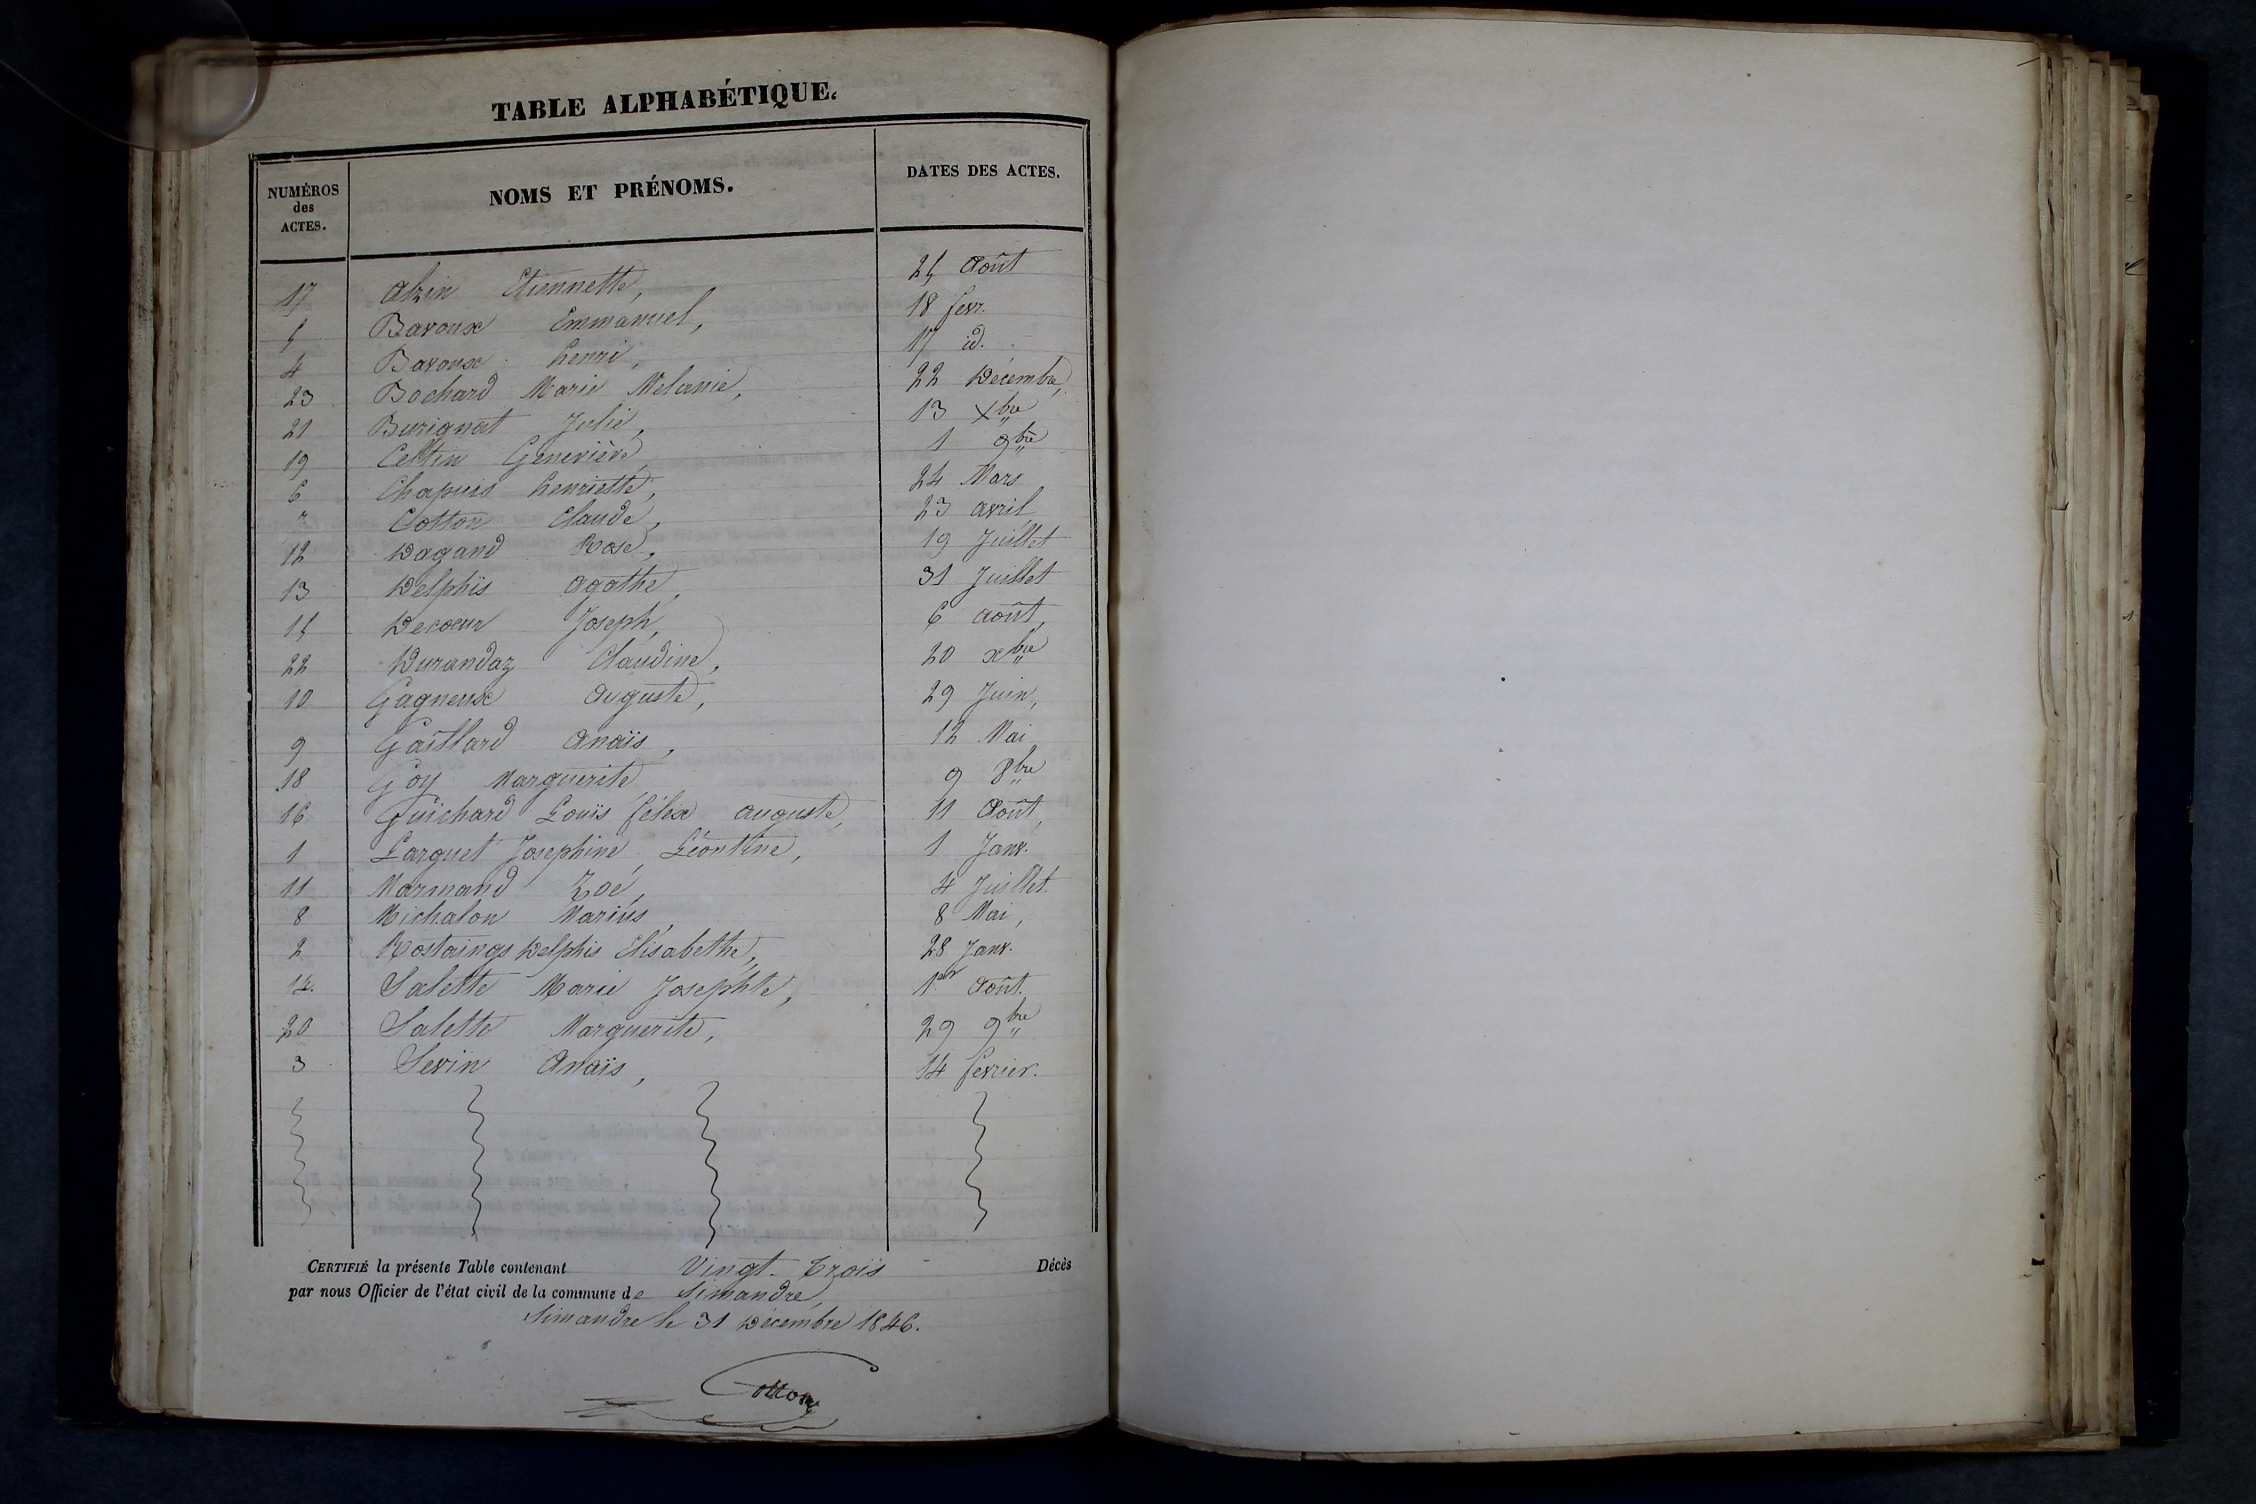 TABLE ALPHABÉTIQUE.
NUMÉROS des ACTES. NOMS ET PRÉNOMS. DATES DES ACTES.
17 Etiennette, 25 Août
5 Baroux Emmanuel, 18 fevr.
4 Baroux henri, 17 id.
23 Bochard Marie Melanie, 22 Décembre,
21 Burignat Julie, 13 Xbre
19 Geneviève 1 9bre
6 Chapuis henriette, 24 Mars
7 Cotton Claude, 23 avril
12 Dagand Rose, 19 Juillet
13 Delphis agathe, 31 Juillet
15 Decoeur Joseph, 6 août,
22 Durandaz Claudine, 20 xbre
10 Gagneux Auguste, 29 Juin,
9 Gaillard Anaïs, 12 Mai
18 Goy Marguerite 9 8bre
16 Guichard Louis félix auguste, 11 Août,
1 Larguet Josephine Léontine, 1 Janv.
11 Marmand Zoé, 4 Juillet
8 Michalon Marius, 8 Mai,
2 Rostaings Delphis Elisabethe, 28 Janv.
14. Salette Marie Josephte, 1er Août.
20 Salette Marguerite, 29 9bre
3 Sevin Anaïs, 14 fevrier.
CERTIFIÉ la présente Table contenant Vingt-trois Décès
par nous Officier de l'état civil de la commune de Simandre,
Simandre le 31 Décembre 1846.
Cotton